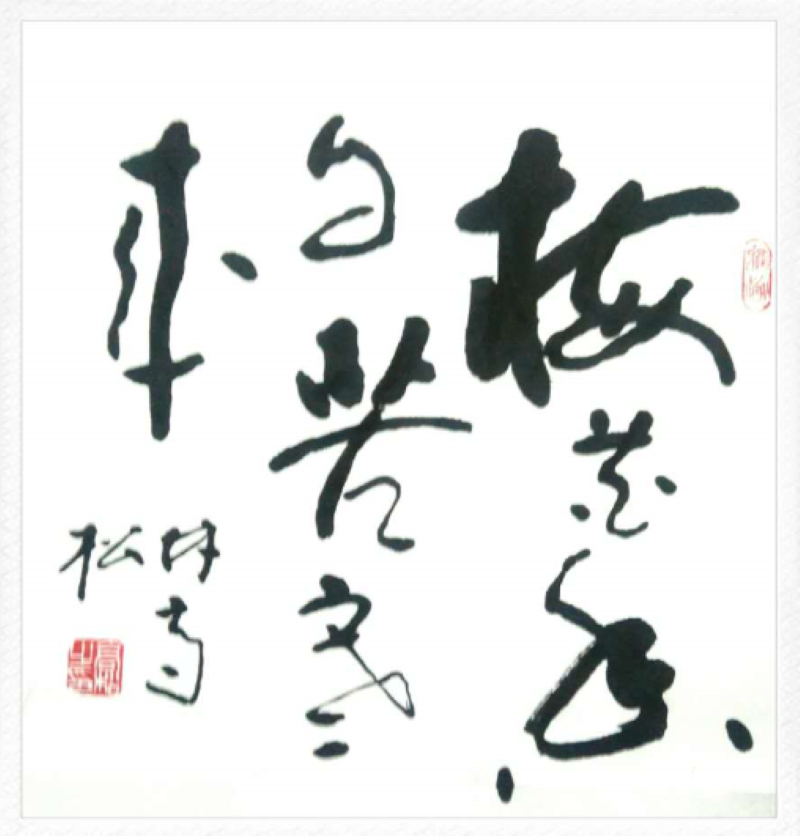 梅花香
自苦寒
来
林高
松